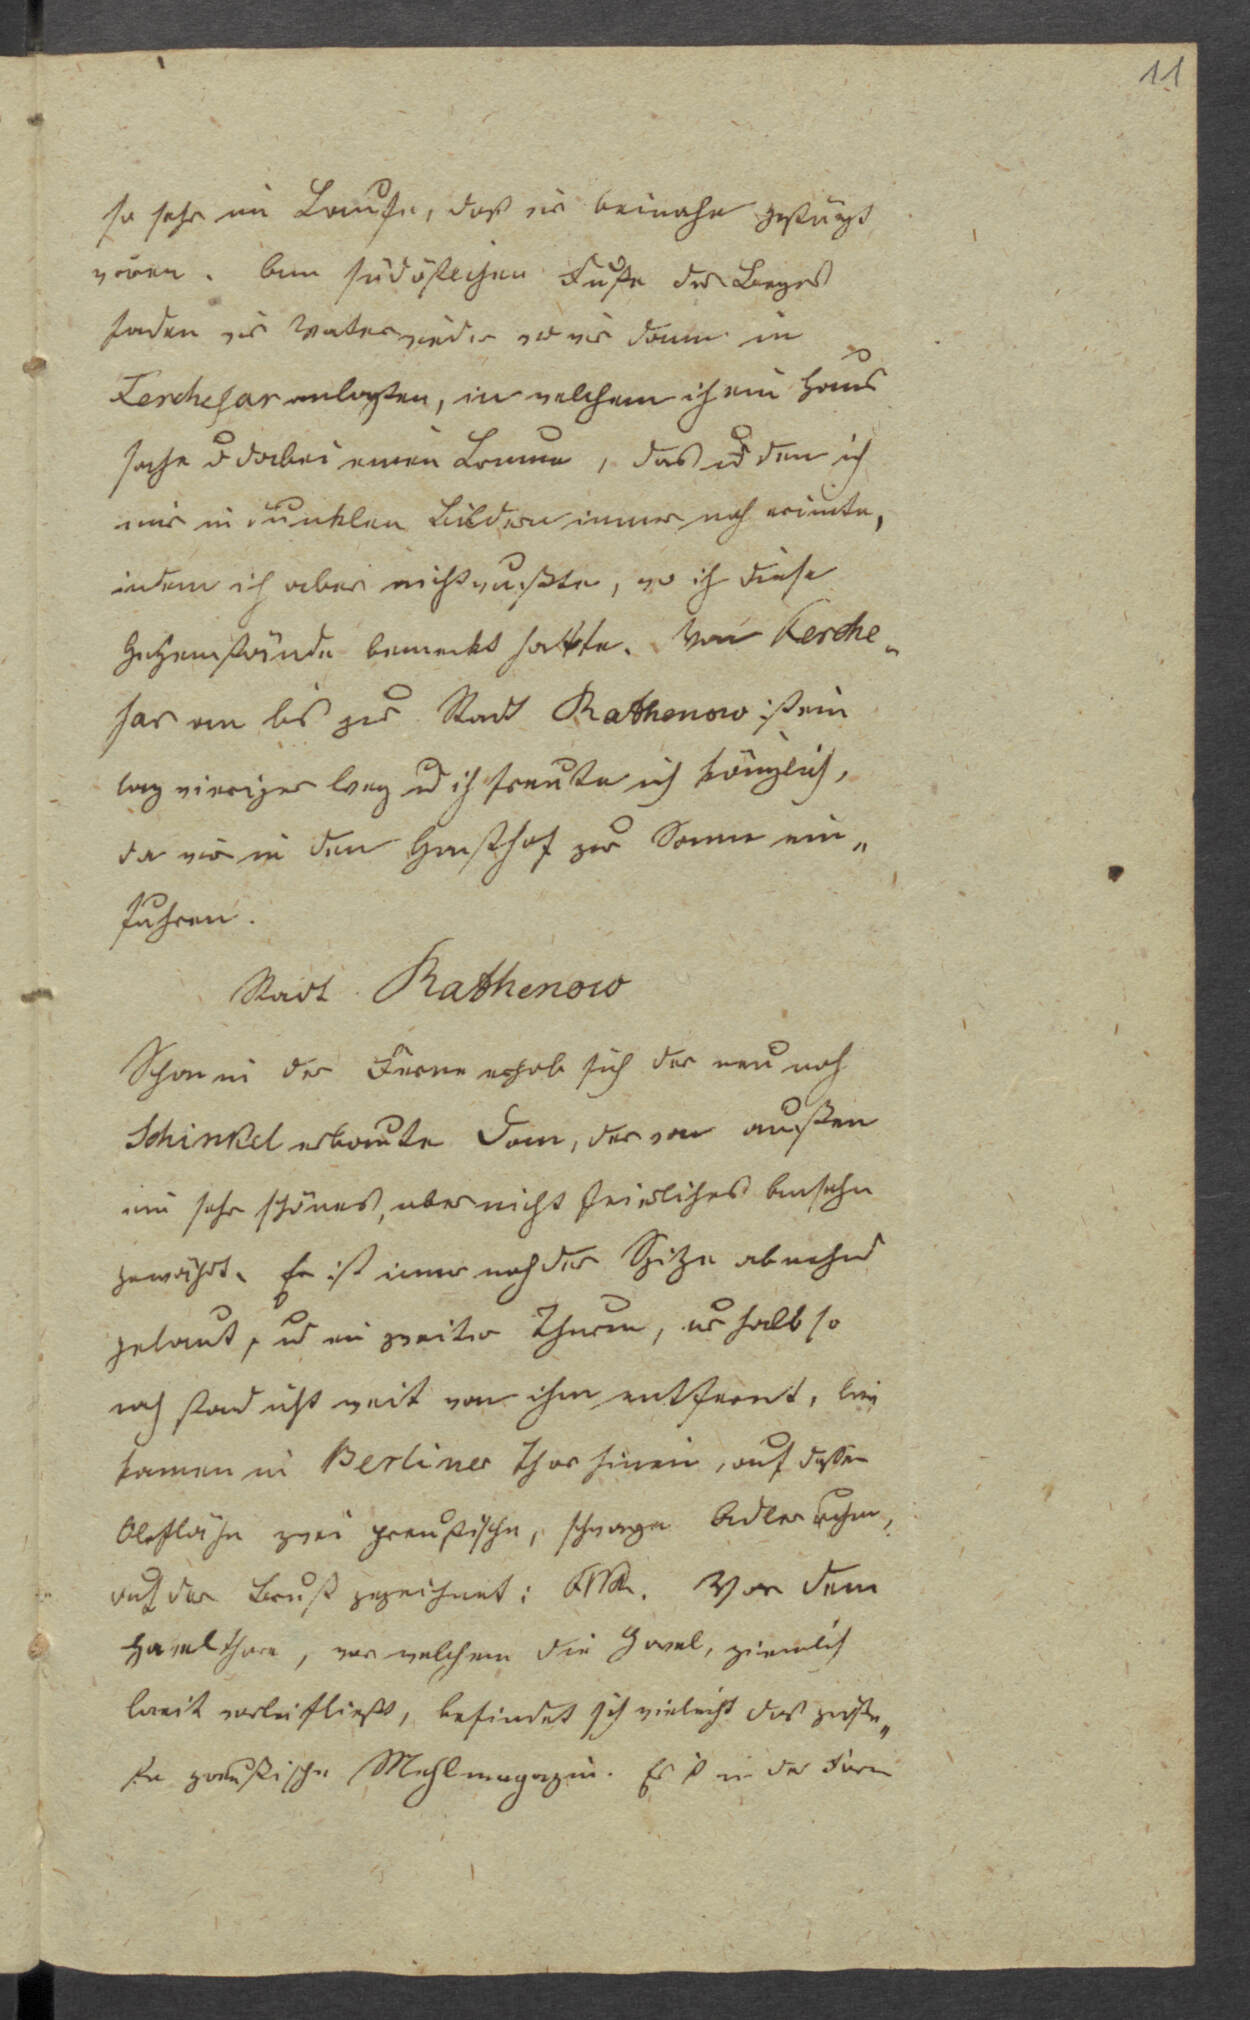 11
so sehr im Laufe, daß wir beinahe gestürzt
wären. Am südöstlichen Fuße des Berges
fanden wir Vater wieder wo wir dann in
Ferchesar anlagten, in welchem ich ein Haus
sahe u dabei einen Baum, das ud den ich
mir in dunklen Bildern immer noch erinnte,
indem ich aber nicht wußte, wo ich diese
Gegenstände bemerkt hatte. Von Ferche„
sar an bis zur Stadt Rathenow ist ein
langwieriger Weg ud ich freute ich königlich,
da wir in den Gasthof zur Sonne ein„
fuhren.
Stadt Rathenow
Schon in der Ferne erhob sich der neu nach
Schinkel erbaute Dom, der von außen
ein sehr schönes, aber nicht feierliches Ansehn
gewährt. Er ist immer nach der Spitze abnehmd
gebaut, ud ein zweiter Thurm, nur halb so
hoch stand nicht weit von ihm entfernt. Wir
kamen in Berliner Thor hinein, auf dessen
Oberfläche zwei preußische, schwarze Adler ruhen,
auf der Brust gezeichnet: FWR. Vor dem
Havelthore, vor welchem die Havel, ziemlich
breit vorbeifließt, befindet sich vieleicht das größe„
ste preußische Mehlmagazin. Es ist in der Form